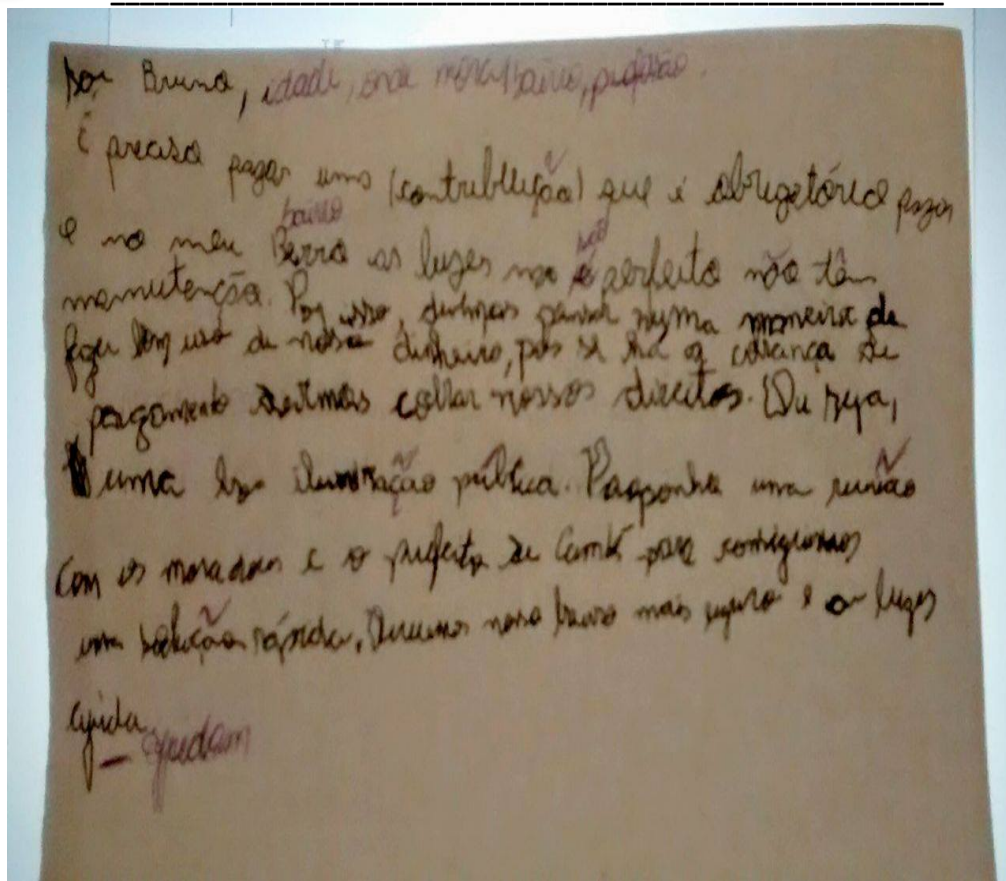 Sou Bruna, idade, onde mora/bairro, profissão.
É precisa pagar uma (contribuição) que é obrigatória pagar
bairro são
e no meu Berro as luzes não é perfeito não têm
manutenção. Por isso, temos pensar numa maneira de
fazer bom uso de nosso dinheiro, pois se há a cobrança de
pagamento nossos direitos. Ou seja,
uma boa iluminação pública. Proponho uma reunião
com os moradores e o prefeito de Cambé para conseguirmos
uma solução rápida, Queremos nosso bairro mais seguro e as luzes
ajuda.
- ajudam